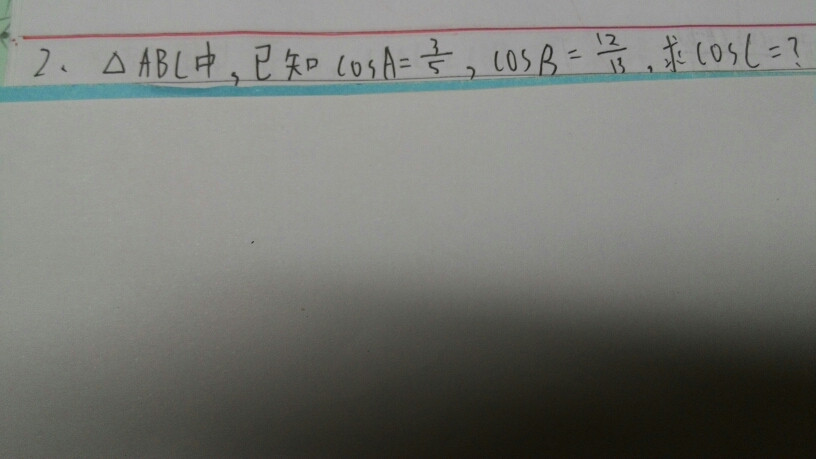 2、△ABC中，已知cosA=3/5，cosB=12/13，求cosC=?